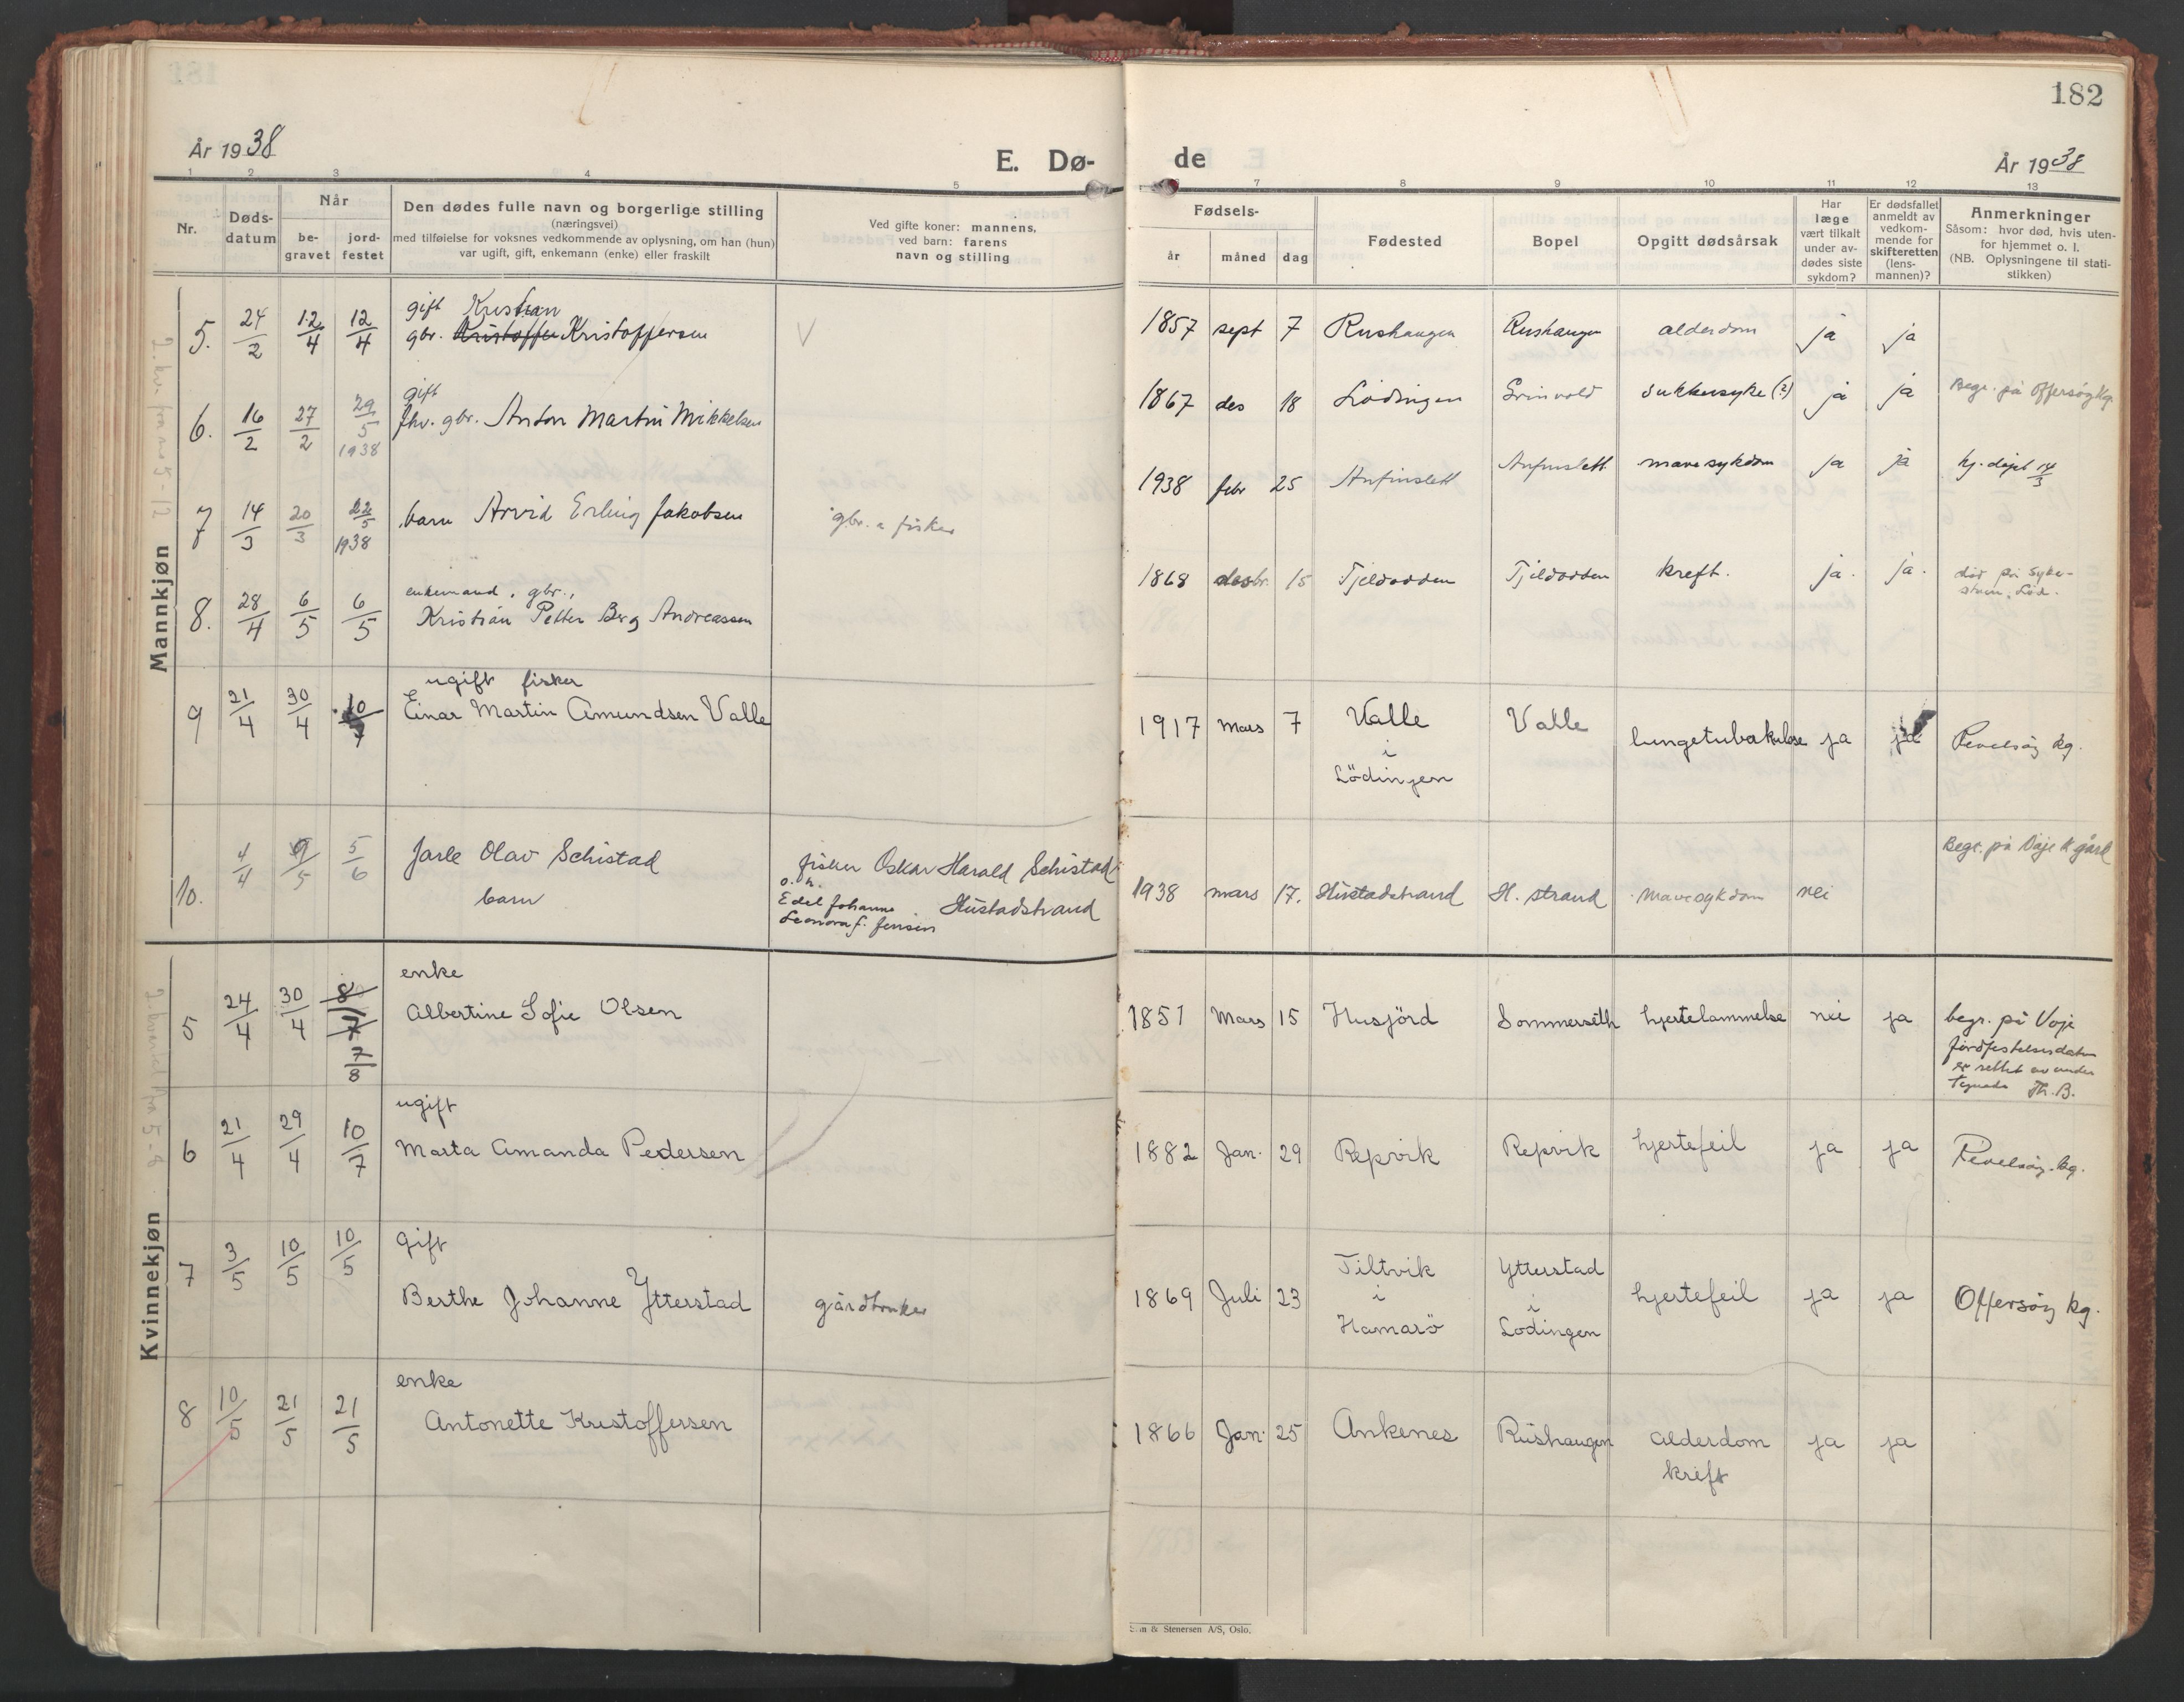 182
År 1938
E. Dø-
de
År 1938
1 2 3 4 5 7 8 9 10 11 12 13
Nr.
Døds-
datum
Når
be-
gravet
jord-
festet
Den dødes fulle navn og borgerlige stilling
(næringsvei)
med tilføielse for voksnes vedkommende av oplysning, om han (hun)
var ugift, gift, enkemann (enke) eller fraskilt
Ved gifte koner: mannens,
ved barn: farens
navn og stilling
Fødsels-
år
måned
dag
Fødested
Bopel
Opgitt dødsårsak
Har
læge
vært tilkalt
under av-
dødes siste
sykdom?
Er dødsfallet
anmeldt av
vedkom-
mende for
skifteretten
(lens-
mannen)?
Anmerkninger
Såsom: hvor død, hvis uten-
for hjemmet o. l.
(NB. Oplysningene til stati-
stikken)
Mannkjøn
gift Kristian
5. 24/2 12/4 12/4 gbr. Kristoffer Kristoffersen V 1857 sept 7 Rushaugen Rushaugen alderdom ja ja
gift
6. 16/2 27/2 29/5 1938 fhv. gbr. Anton Martin Mikkelsen 1867 des 18 Lödingen Grinvold Sukkersyke (?) ja ja Begr. på Offersøy kg.
7 14/3 20/3 22/5 1938 barn Arvid Erling Jakobsen gbr. a fisker 1938 febr 25 Anfinslett Anfinslett mavesykdom ja ja hj. døpt 14/3
enkemand, gbr.,
8. 28/4 6/5 6/5 Kristian Petter Berg Andreassen 1868 desbr. 15 Tjeldodden Tjeldodden kreft. ja. ja. död på syke-
stuen, Löd.
ugift fisker
9 21/4 30/4 10/7 Einar Martin Amundsen Valle 1917 Mars 7 Valle
i
Lödingen
Valle lungetuberkulose ja ja Revelsøy kg.
10. 4/4 9/5 5/6 Jarle Olav Schistad
barn
fisker Oskar Harald Schistad
o. h.
Edel Johanne
Leonora f. Jensen
Hustadstrand
1938 mars 17. Hustadstrand H. strand Mavesykdom nei Begr. på Våje k.gård
Kvinnekjøn
enke
5 24/4 30/4 8/7 7/8 Albertine Sofie Olsen 1851 Mars 15 Husjörd Sommerseth hjertelammelse nei ja begr. på Voje
Jordfestelsesdatum
er rettet av under
tegnede Th. B.
ugift
6 21/4 29/4 10/7 Marta Amanda Pedersen 1882 Jan. 29 Repvik Repvik hjertefeil ja ja Revelsøy. kg.
gift
7 3/5 10/5 10/5 Berthe Johanne Ytterstad gårdbruker 1869 Juli 23 Tiltvik
i
Hamarö
Ytterstad
i
Lodingen
hjertefeil ja ja Offersöy kg.
enke
8 10/5 21/5 21/5 Antonette Kristoffersen 1866 Jan. 25 Ankenes Rushaugen alderdom
kreft
ja ja
& Stenersen A/S, Oslo.